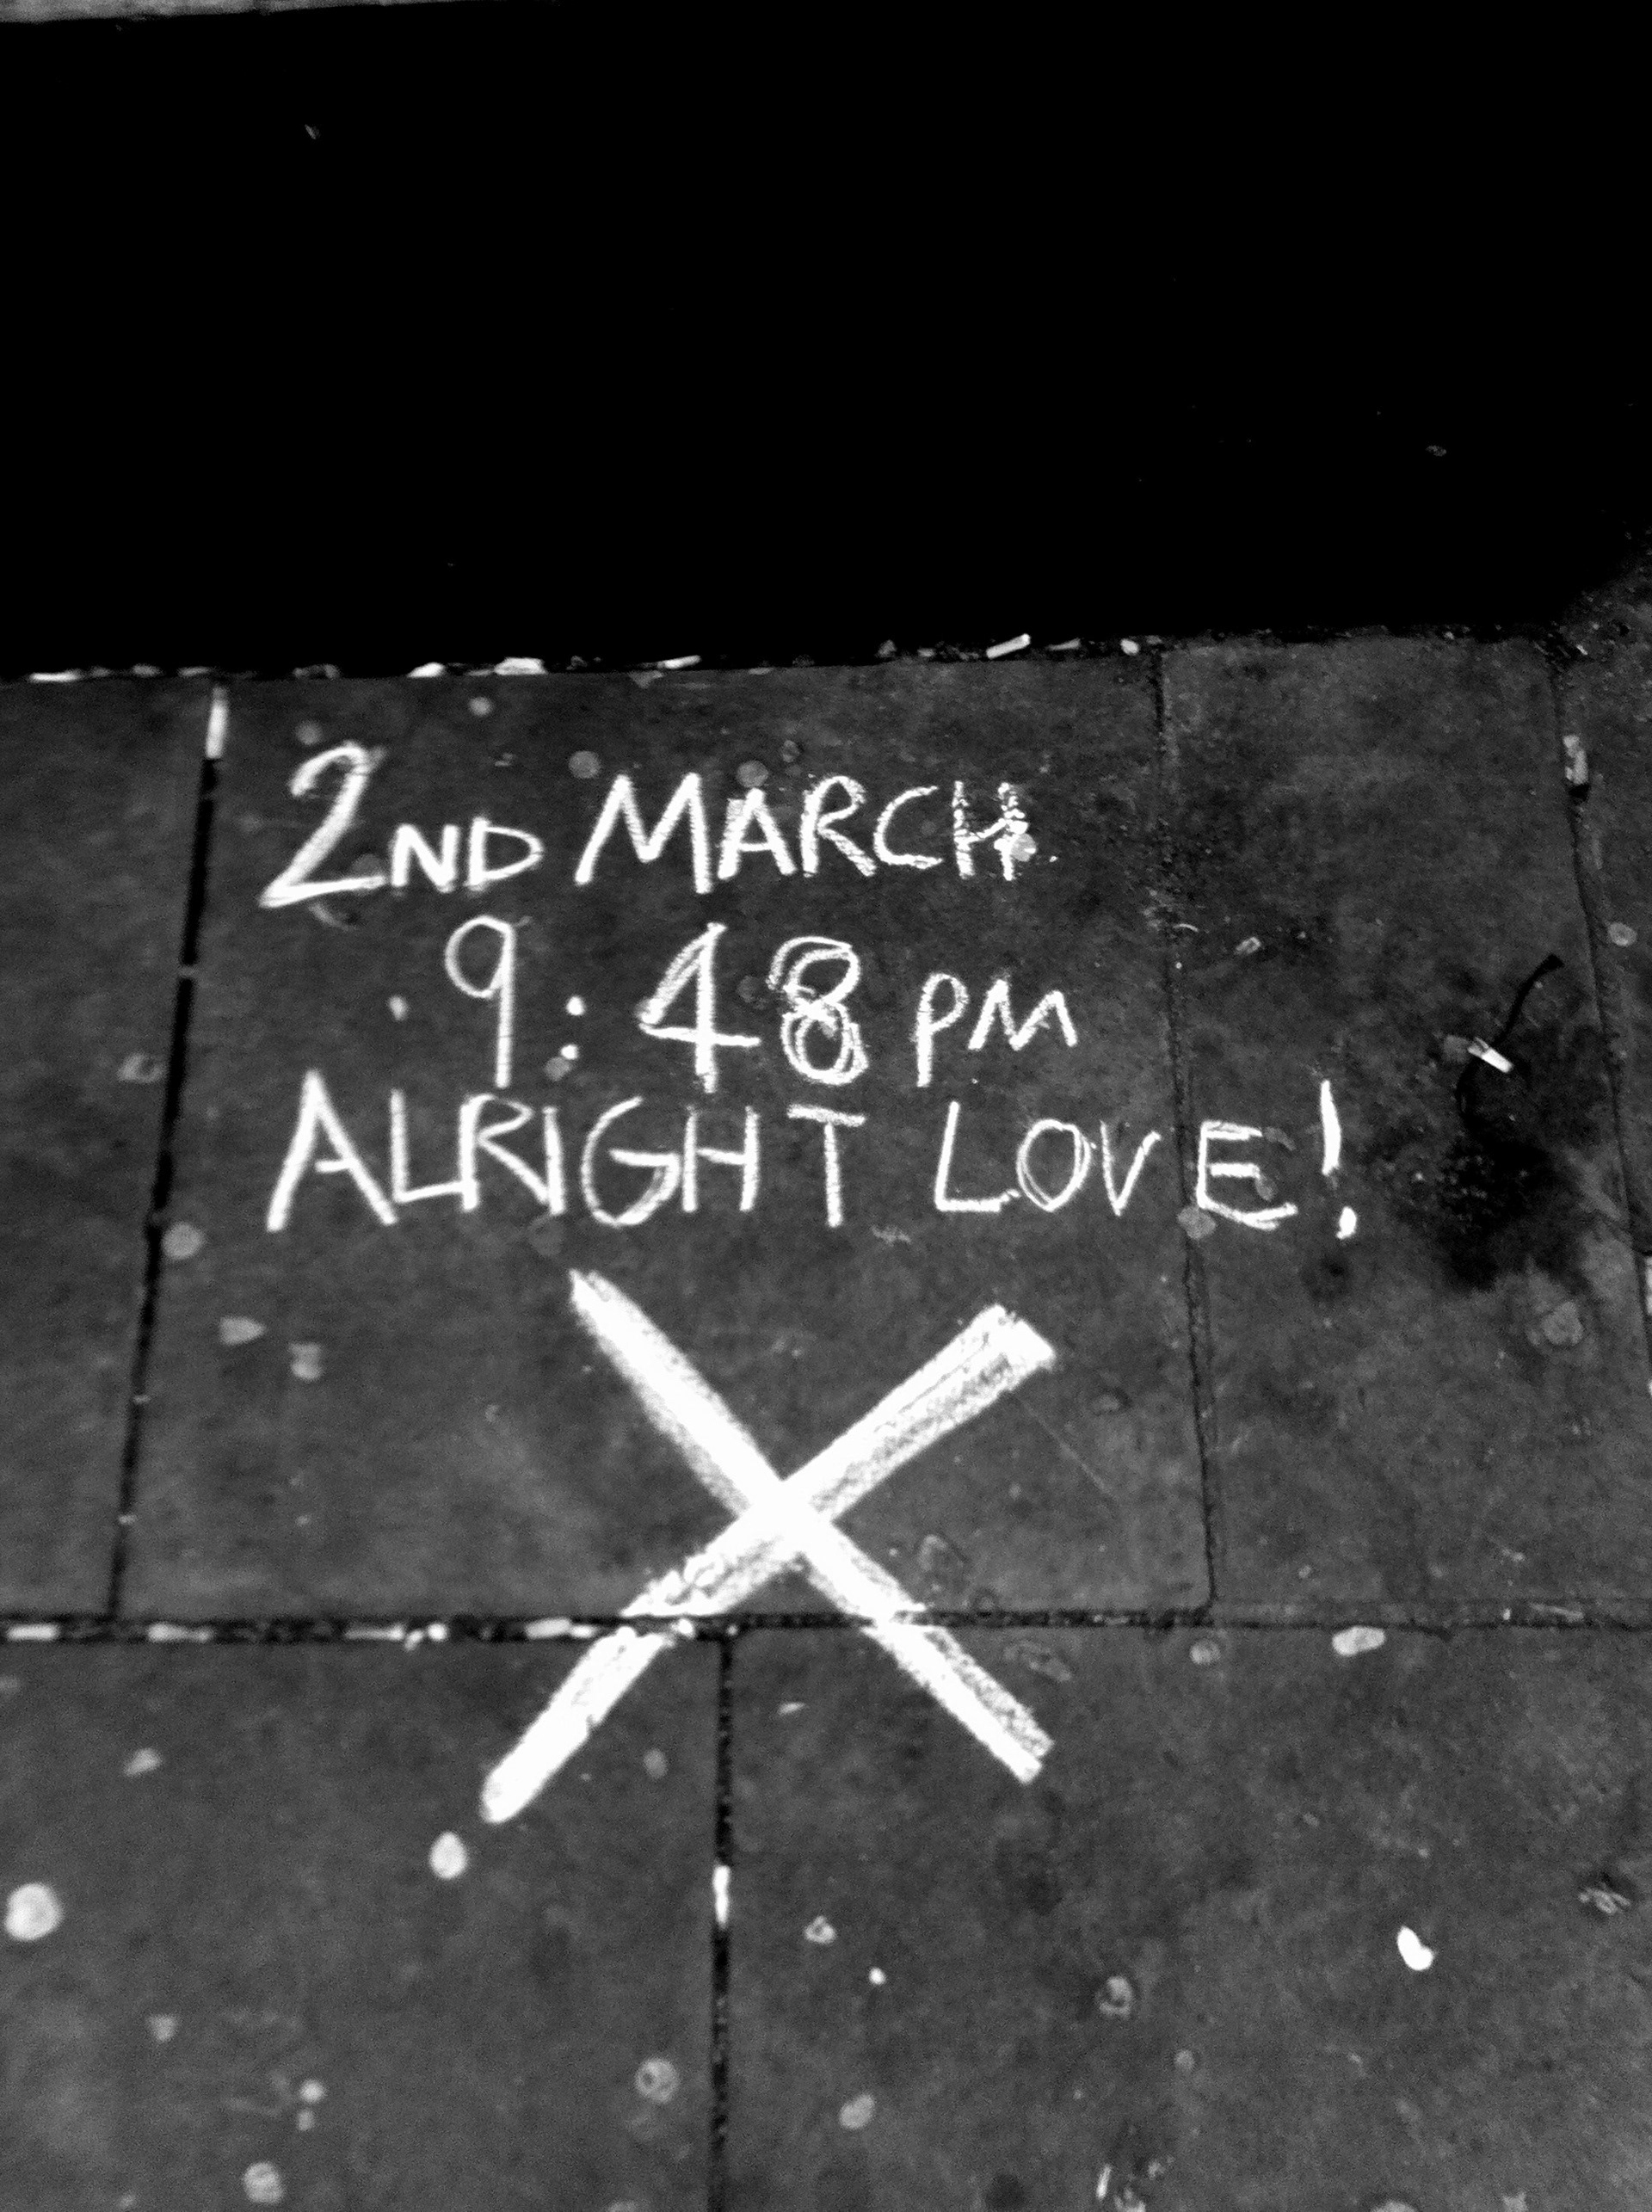 2ND MARCH
9:48 PM
ALRIGHT LOVE!
X